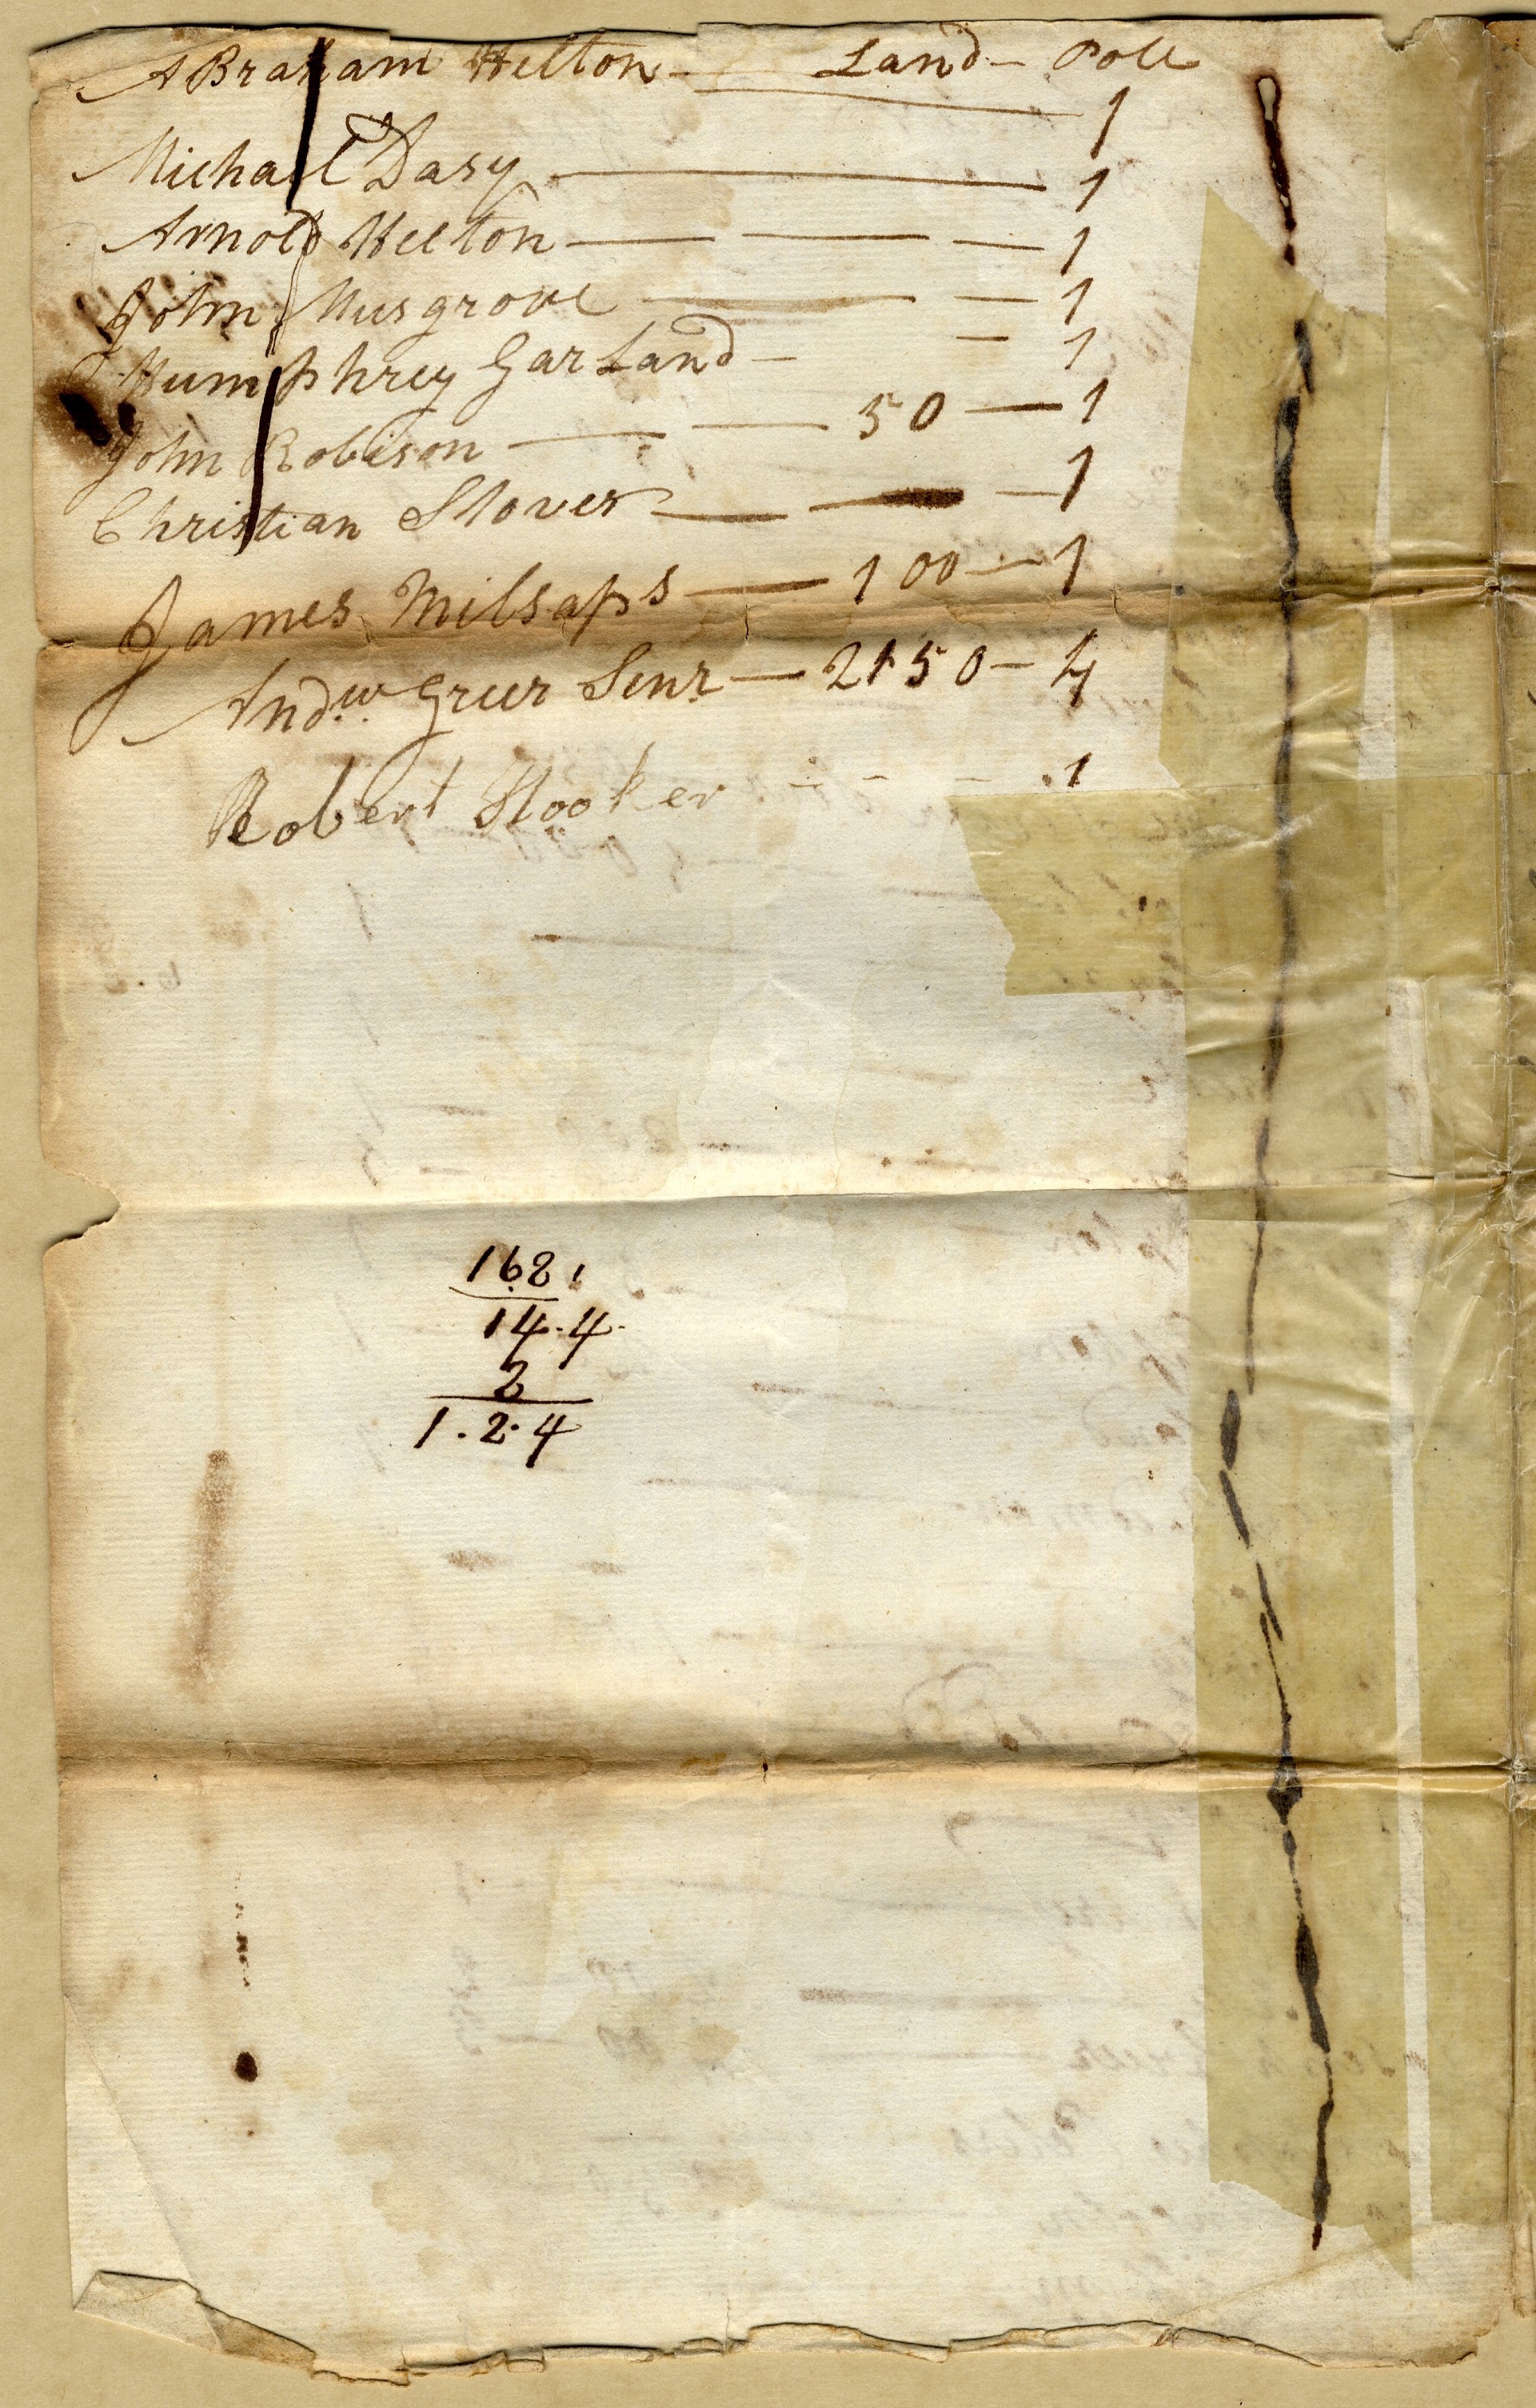 ABraham Helton — Land — Pole
1
Michael Dasy — 1
Arnold Helton — — — 1
John Musgrove — — 1
Humphrey Garland — — 1
John Robison — — 50 — 1
Christian Stover — — — 1
James Milsaps — 100 — 1
Andw. Greer Senr — 2150 — 4
Robert Hooker - - - 1
1681
14.4
2
1.2.4